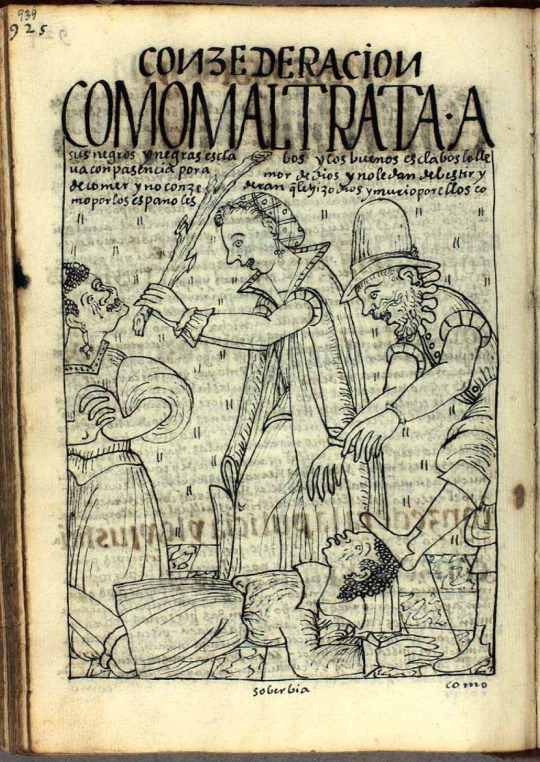 939
925
CONZEDERACION
COMOMALTRATA·A
sus negros y negras escla bos y los buenos esclabos lo lle
ua con pasencia por a mor de dios y no le dan de bestir y
de comer y no conze deran q̃ le hizo dios y murio por ellos co
mo por los espanoles
soberbia
como